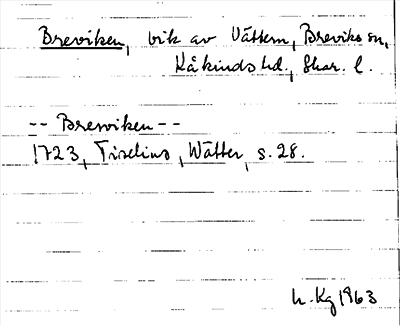 Breviken, vik av Vättern, Breviks sn,
Kåkinds hd., Skar. l.
-- Breviken --
1723, Tiselius, Wätter, s. 28.
h. Kg 1963